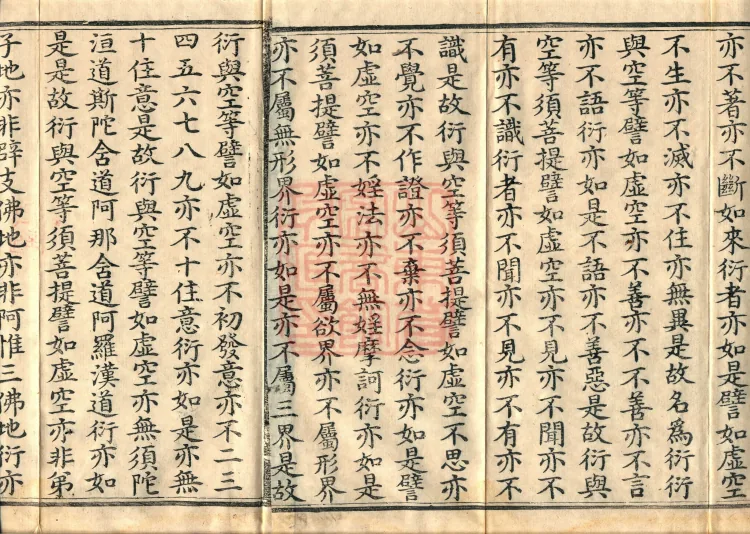 亦不著亦不斷如來衍者亦如是譬如虛空
不生亦不滅亦不住亦無異是故名為衍衍
與空等譬如虛空亦不善亦不不善亦不言
亦不語衍亦如是不語亦不善惡是故衍與
空等須菩提譬如虛空亦不見亦不聞亦不
有亦不識衍者亦不聞亦不見亦不有亦不
識是故衍與空等須菩提譬如虛空不思亦
不覺亦不作證亦不棄亦不念衍亦如是譬
如虛空亦不婬法亦不無婬摩訶衍亦如是
須菩提譬如虛空亦不屬欲界亦不屬形界
亦不屬無形界衍亦如是亦不屬三界是故
衍與空等譬如虛空亦不初發意亦不二三
四五六七八九亦不十住意衍亦如是亦無
十住意是故衍與空等譬如虛空亦無須陀
洹道斯陀含道阿那含道阿羅漢道衍亦如
是是故衍與空等須菩提譬如虛空亦非弟
子地亦非辟支佛地亦非阿惟三佛地衍亦